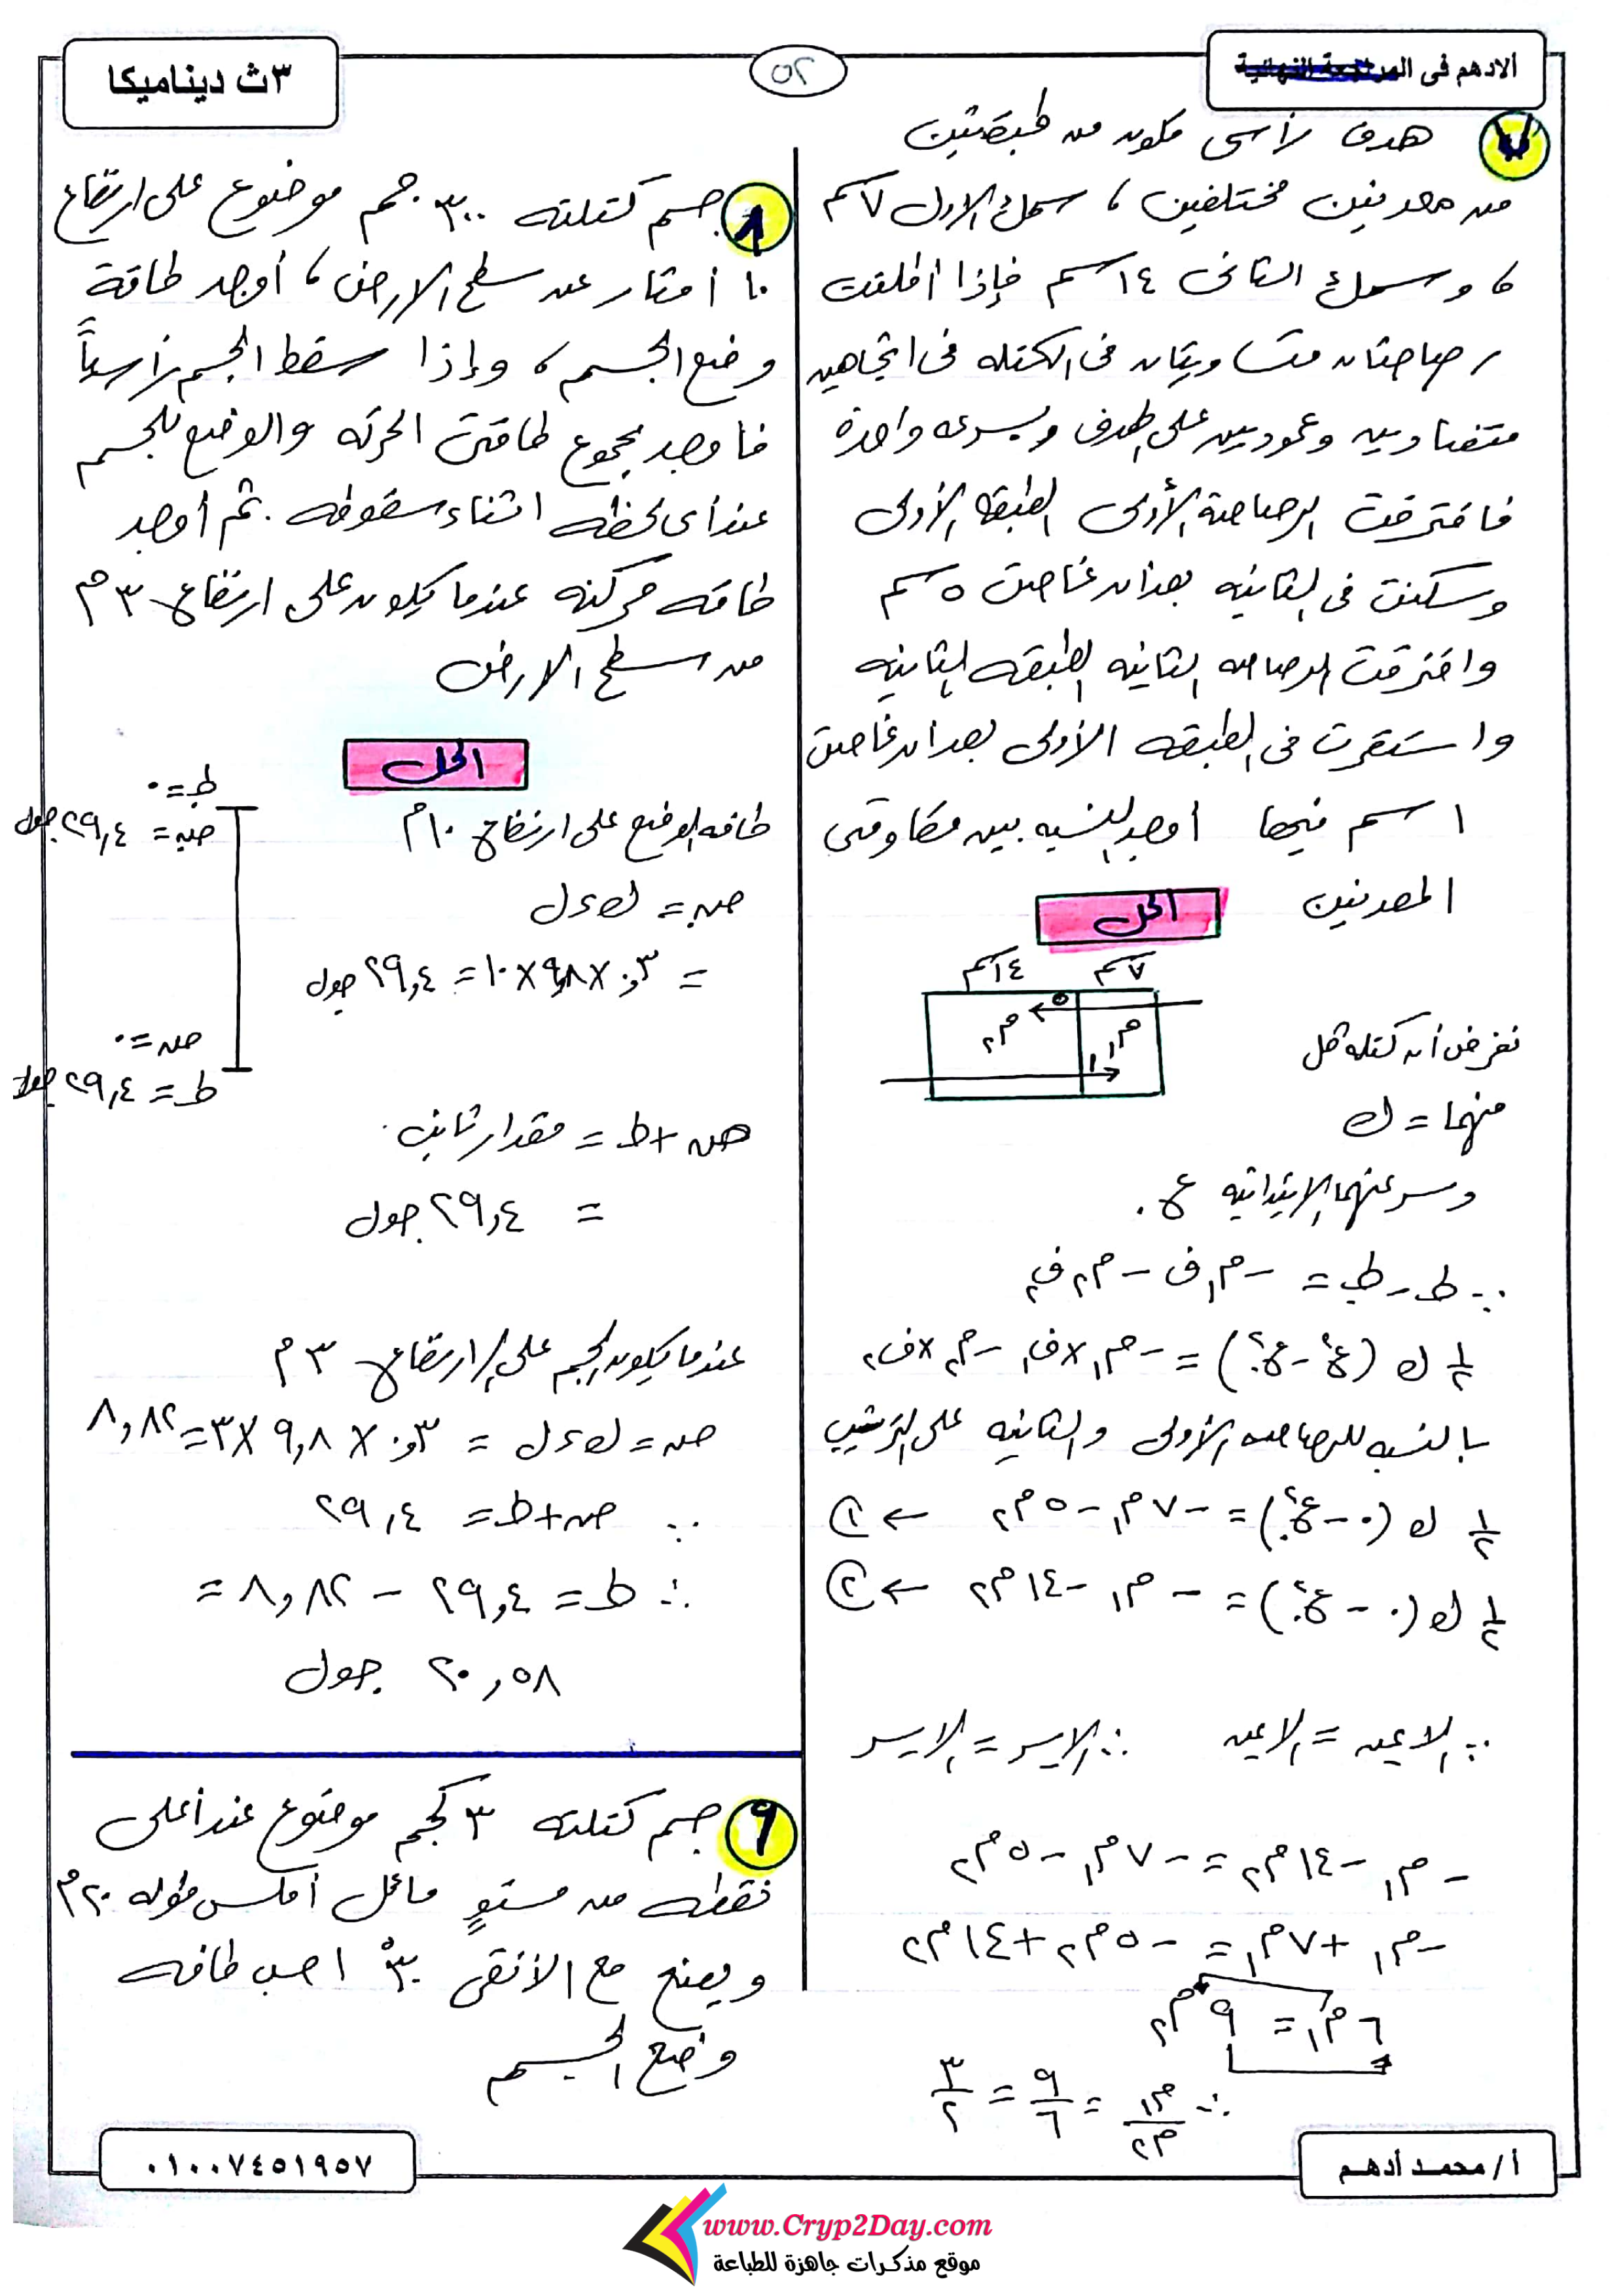 الادهم فى المراجعة النهائية
٥٢
٣ث ديناميكا
٧ هدف رأسى مكون من طبقتين
من معدنين مختلفين ، سمك الاول ٧سم
، وسمك الثانى ١٤سم فإذا أطلقت
رصاصتان متساويتان فى الكتله فى اتجاهين
متضادين وعموديين على الهدف وبسرعه واحدة
فاخترقت الرصاصة الأولى الطبقه الأولى
وسكنت فى الثانيه بعد ان غاصت ٥سم
واخترقت الرصاصه الثانيه الطبقه الثانيه
واستقرت فى الطبقه الأولى بعد ان غاصت
١ سم فيها أوجد النسبه بين مقاومتى
المعدنين
الحل
١٤سم ٧سم
٥
م٢ م١
١
نفرض أن كتله كل
منهما = ك
وسرعتهما الابتدائيه ع.
∵ ط - ط. = - م١ ف١ - م٢ ف٢
١/٢ ك (ع٢ - ع.٢) = - م١ × ف١ - م٢ × ف٢
بالنسبه للرصاصه الأولى والثانيه على الترتيب
١/٢ ك (٠ - ع.٢) = - ٧م١ - ٥م٢ ← ①
١/٢ ك (٠ - ع.٢) = - م١ - ١٤م٢ ← ②
∵ الايمن = الايمن ∴ الايسر = الايسر
- م١ - ١٤م٢ = - ٧م١ - ٥م٢
- م١ + ٧م١ = - ٥م٢ + ١٤م٢
٦م١ = ٩م٢
∴ م١/م٢ = ٩/٦ = ٣/٢
٨ جسم كتلته ٣٠٠ جم موضوع على ارتفاع
١٠ أمتار عن سطح الارض ، أوجد طاقة
وضع الجسم ، وإذا سقط الجسم رأسياً
فأوجد مجموع طاقتى الحركه والوضع للجسم
عند أى لحظه اثناء سقوطه . ثم أوجد
طاقه حركته عندما يكون على ارتفاع ٣م
من سطح الارض
الحل
ط. = ٠
ص. = ٢٩,٤ جول
ص = ٠
ط = ٢٩,٤ جول
طاقه الوضع على ارتفاع ١٠م
ص. = ك ء ل
= ٠,٣ × ٩,٨ × ١٠ = ٢٩,٤ جول
ص + ط = مقدار ثابت
= ٢٩,٤ جول
عندما يكون الجسم على ارتفاع ٣م
ص = ك ء ل = ٠,٣ × ٩,٨ × ٣ = ٨,٨٢
∵ ص + ط = ٢٩,٤
∴ ط = ٢٩,٤ - ٨,٨٢ =
٢٠,٥٨ جول
٩ جسم كتلته ٣ كجم موضوع عند أعلى
نقطه من مستوٍ مائل أملس طوله ٢٠م
ويصنع مع الافقى ٣٠° احسب طاقه
وضع الجسم
أ/ محمد أدهم
٠١٠٠٧٤٥١٩٥٧
www.Cryp2Day.com
موقع مذكرات جاهزة للطباعة